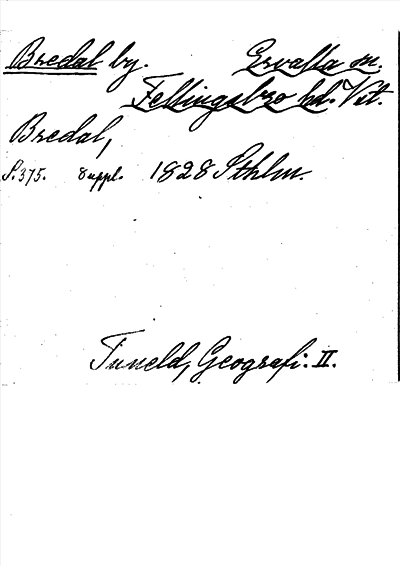 Bredal by. Ervalla sn.
Fellingsbro hd. Vst.
Bredal,
S.375. Suppl. 1828 Sthlm.
Tuneld, Geografi. II.